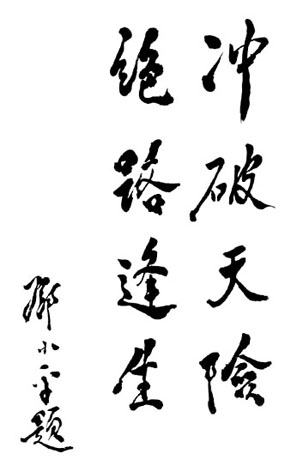 冲破天險
绝路逢生
邓小平题